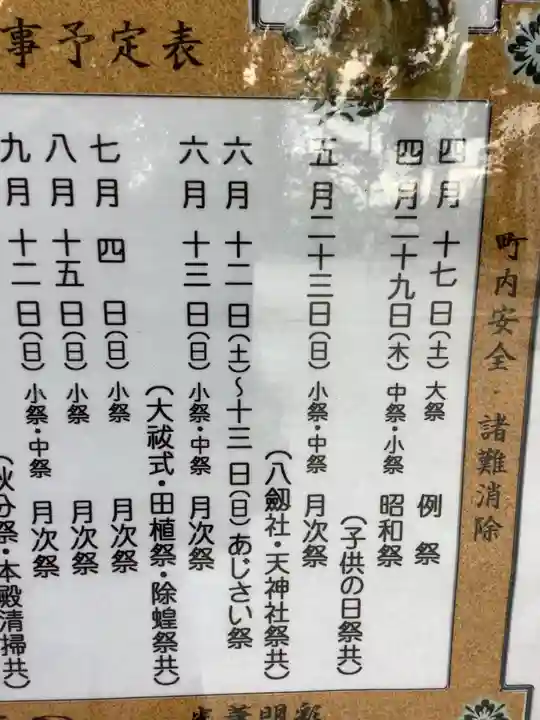 事予定表
四月十七日(土)大祭 例祭
四月二十九日(木)中祭・小祭 昭和祭
(子供の日祭共)
五月二十三日(日)小祭・中祭 月次祭
(八劔社・天神社祭共)
六月十二日(土)〜十三日(日)あじさい祭
六月十三日(日)小祭・中祭 月次祭
(大祓式・田植祭・除蝗祭共)
七月四日(日)小祭 月次祭
八月十五日(日)小祭 月次祭
九月十二日(日)小祭・中祭 月次祭
(秋分祭・本殿清掃共)
町内安全・諸難消除